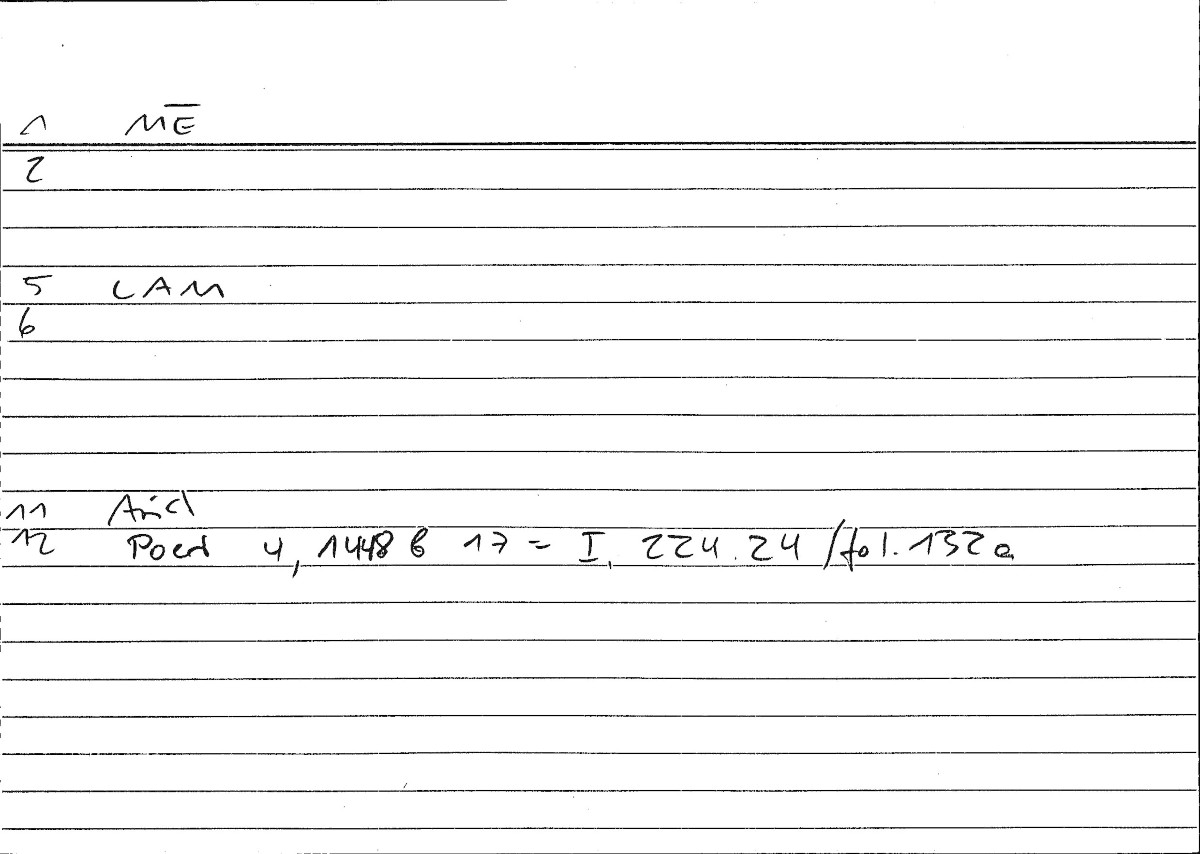 1 MĒ
2
5 LAM
6
11 Arist
12 Poet 4, 1448 b 17 = I, 224.24 / fol. 132a